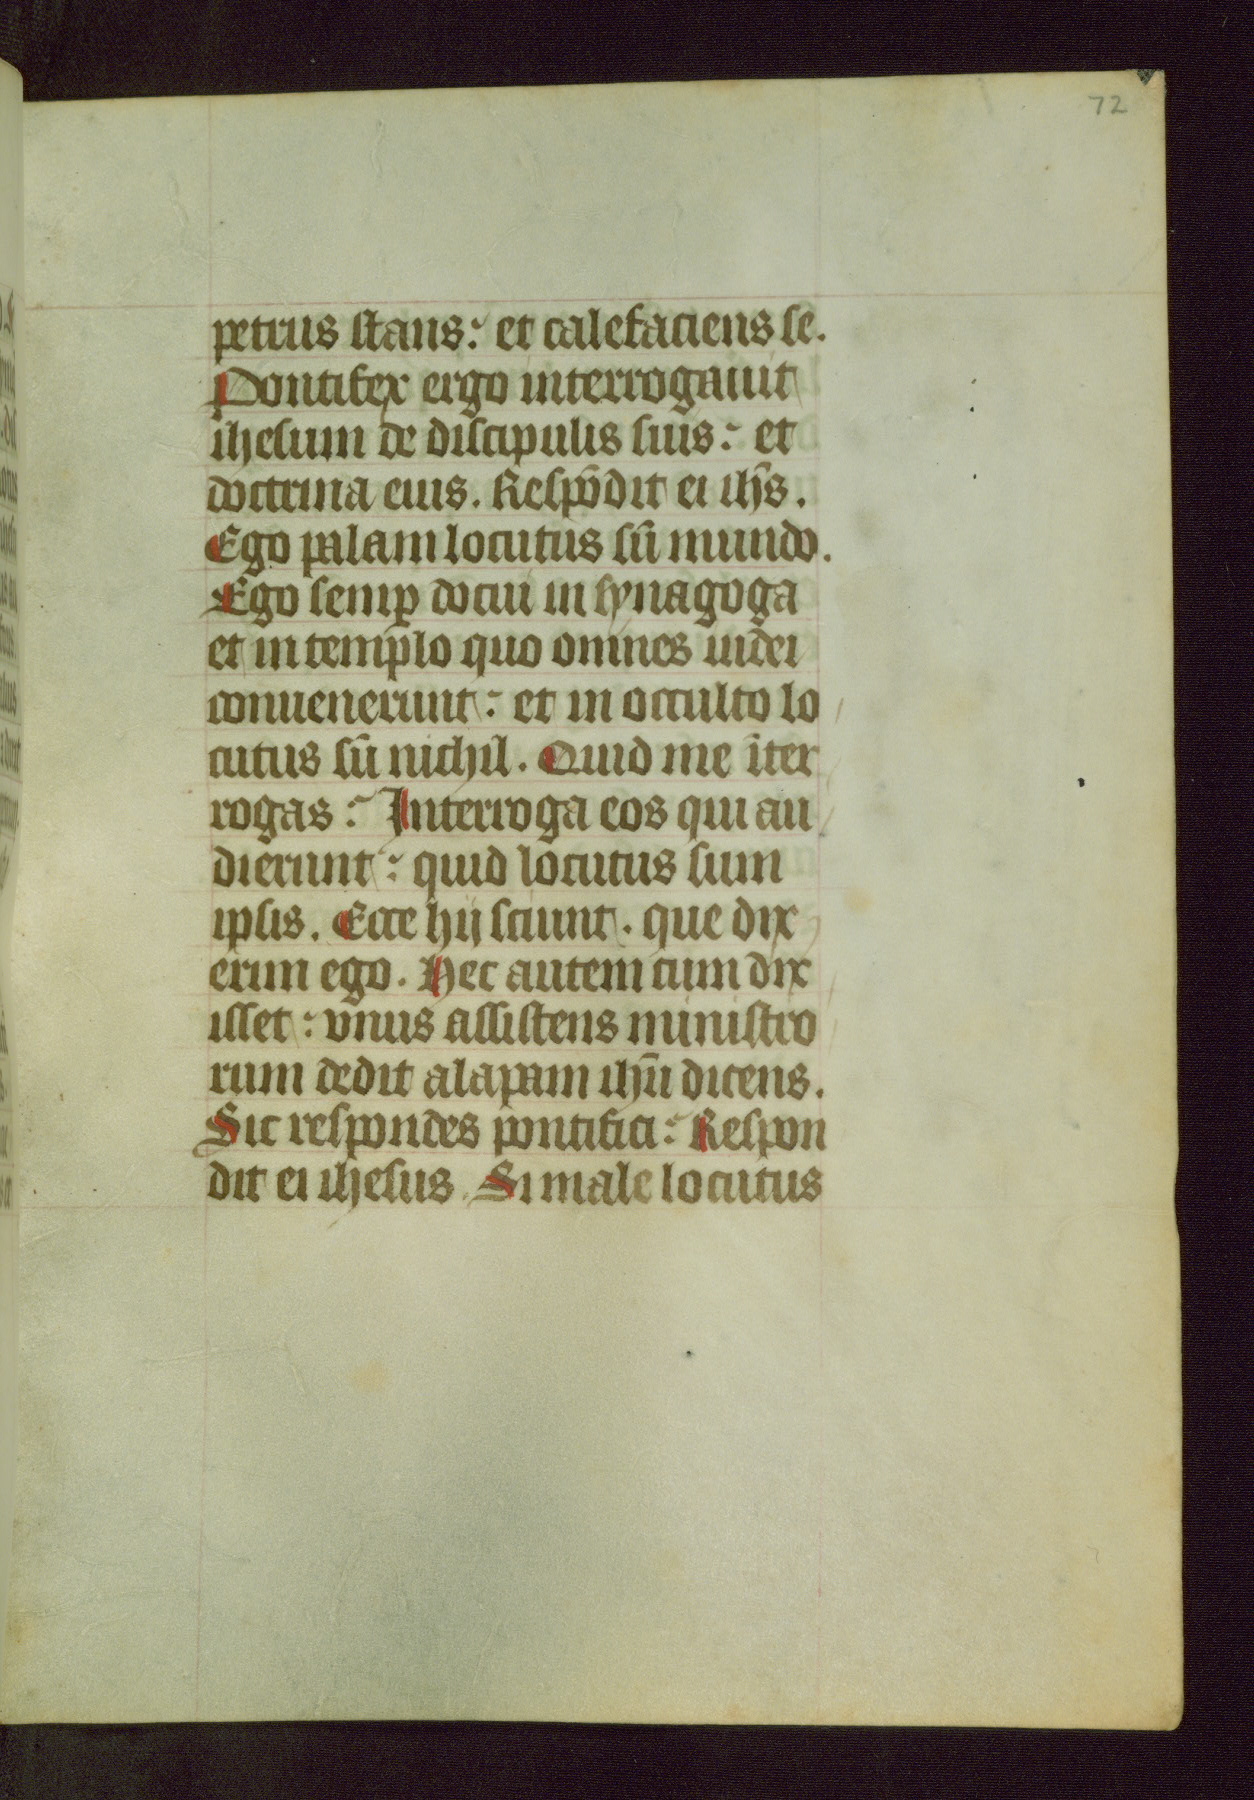 72
petrus stans: et calefaciens se.
Pontifex ergo interrogauit
ihesum de discipulis suis: et
doctrina eius. Respōdit ei ihs̄.
Ego palam locutus sū mundo.
Ego semꝑ docui in synagoga
et in templo quo omnes iudei
conuenerunt: et in occulto lo
cutus sū nichil. Quid me īter
rogas: Interroga eos qui au
dierunt: quid locutus sum
ipsis. Ecce hij sciunt. que dix
erim ego. Hec autem cum dix
isset: vnus assistens ministro
rum dedit alapam ihū dicens.
Sic respondes pontifici: Respon
dit ei ihesus. Si male locutus